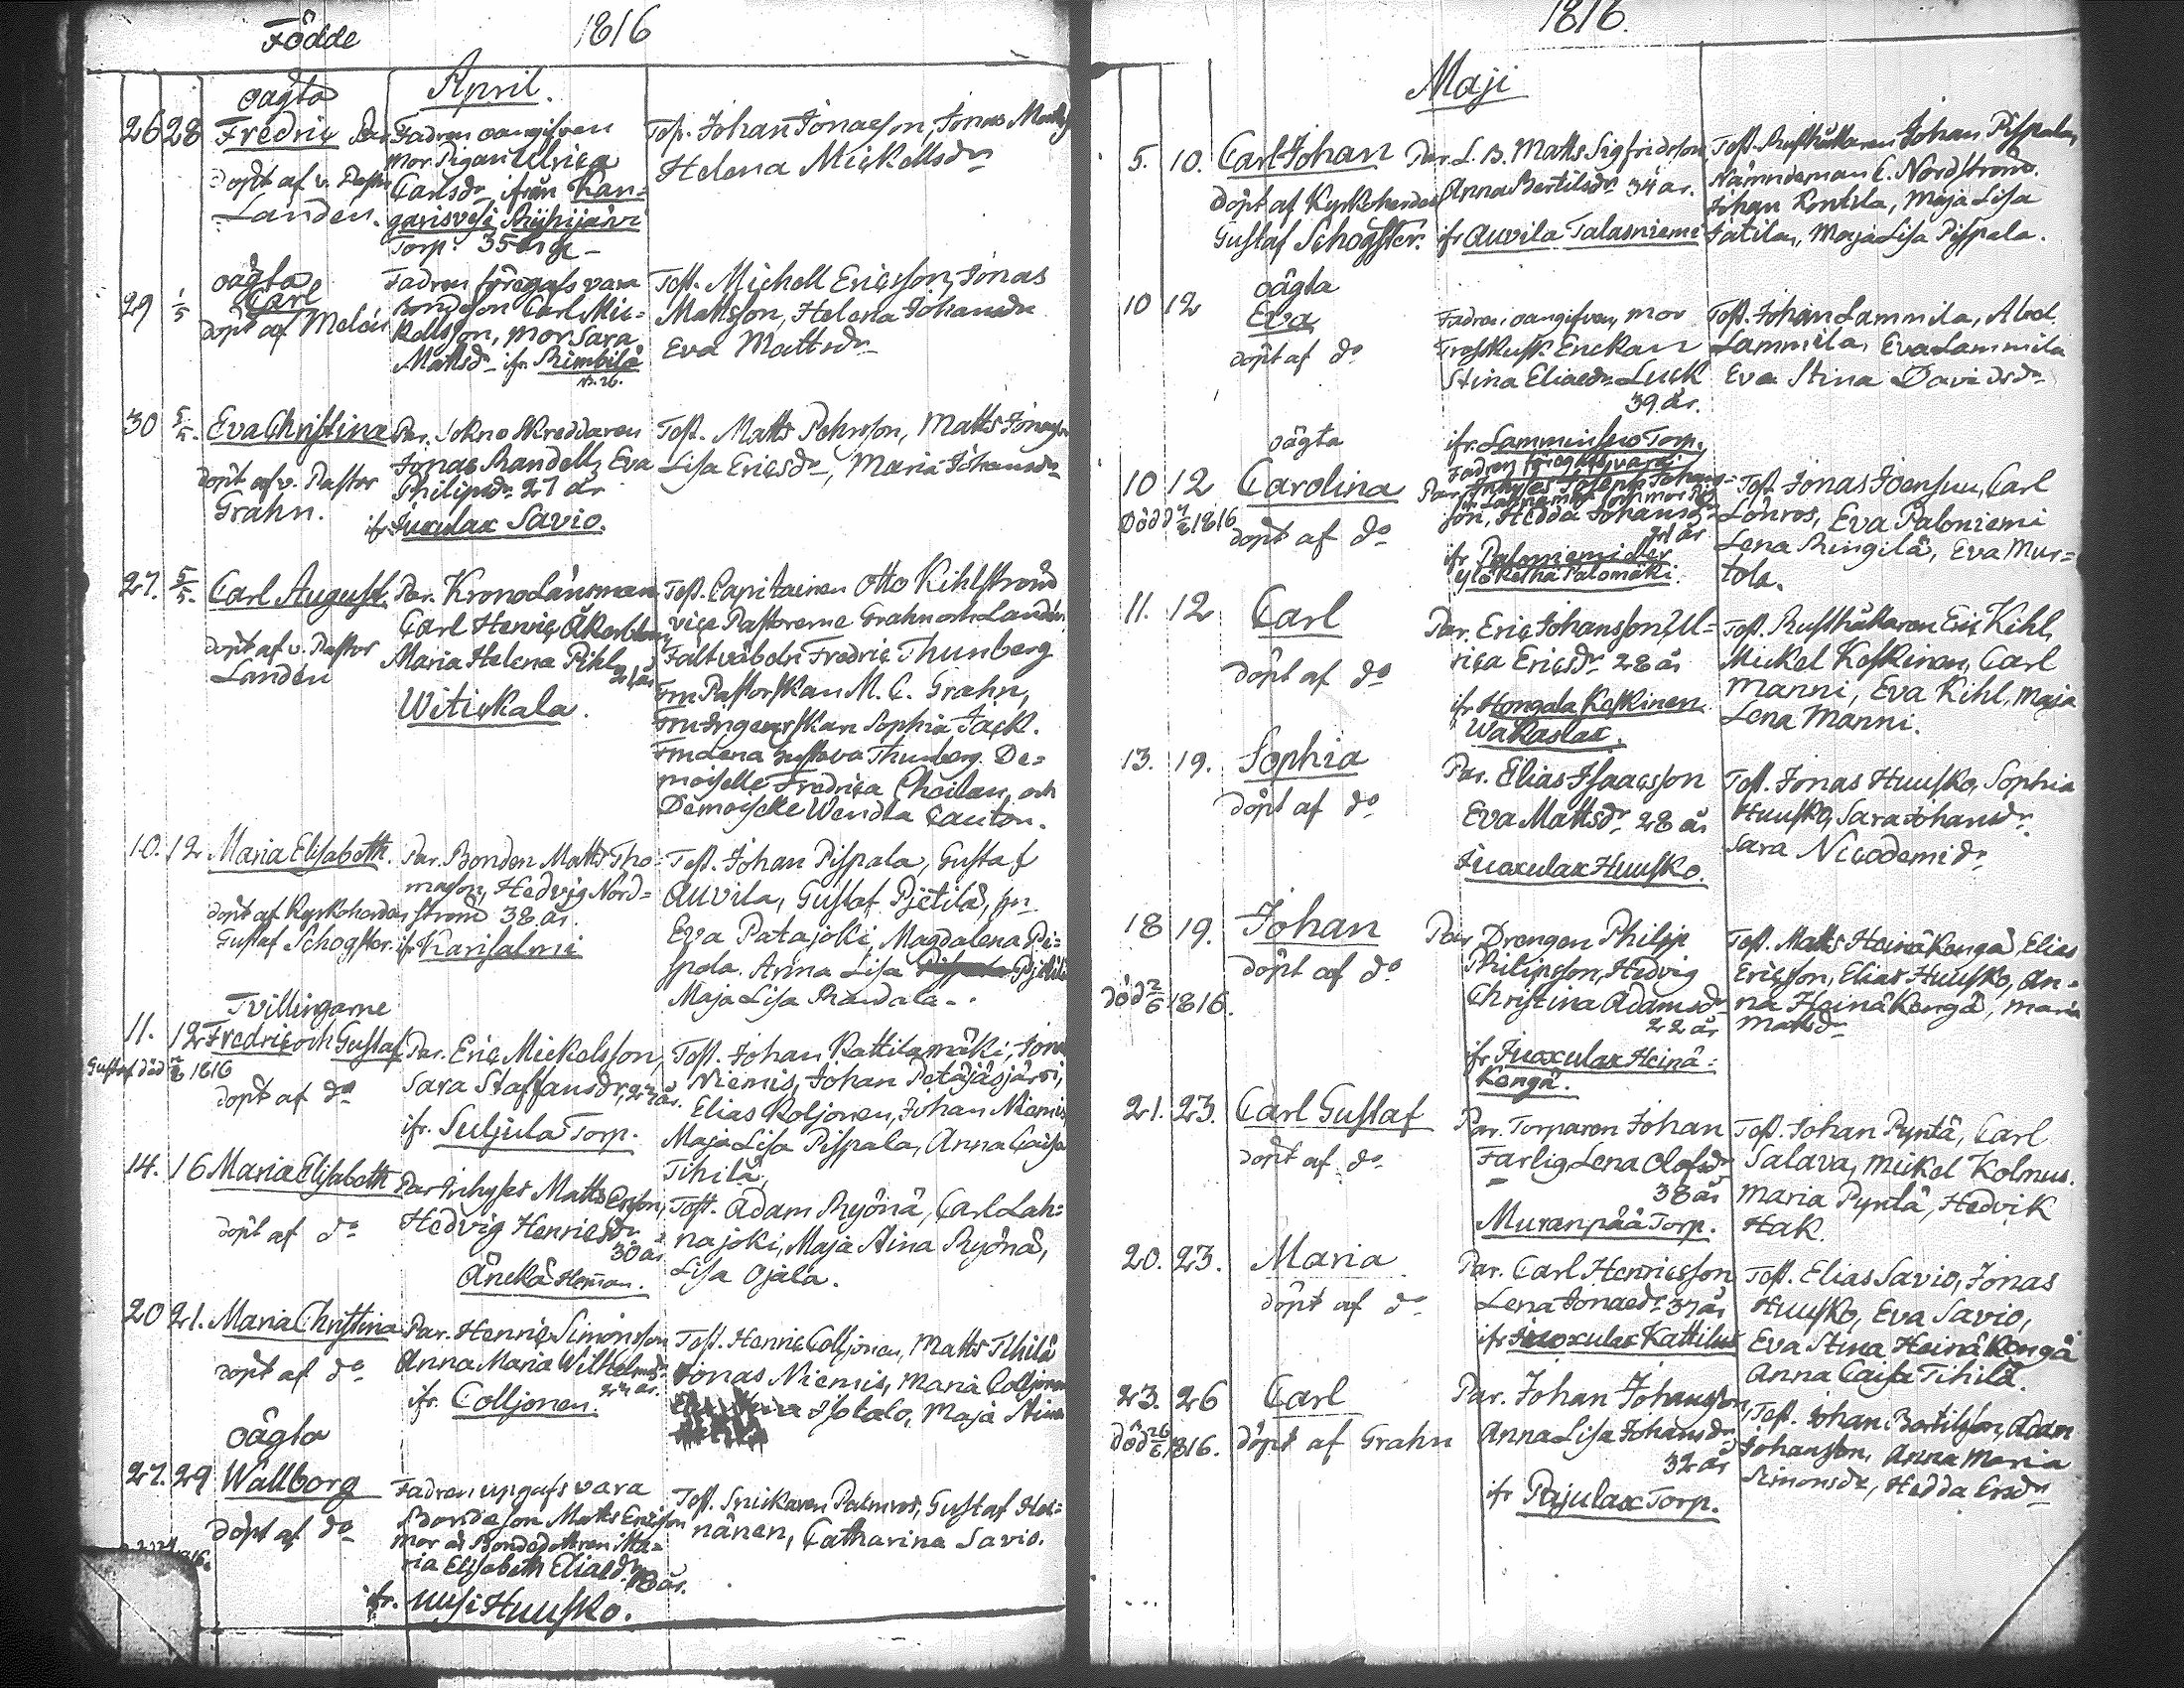 Födde 1816
April.
oägta
26 28 Fredric Par. Fadren oangifven
mor Pigan Ulrica
Carlsdr ifrån Kan=
garisvesi Ryhijärvi
Torp. 35 år
döpt af v. Pastor
Landen.
Test. Johan Jonaeson, Jonas
Helena Mickelsdr
oägta
29 1/5 Carl
döpt af Melén
Fadren föregafs vara
Bondeson Carl Mic=
kellsson, mor Sara
Mattsdr ifr. Rimbilä
N:26.
Test. Michell Ericsson, Jonas
Mattsson, Helena Johansdr
Eva Mattsdr
30 5/5. Eva Christina
döpt af v. Pastor
Grahn.
Par. Sokne Skreddaren
Jonas Randell, Eva
Philipsdr 27 år
ifr Juoxulax Savio.
Test. Matts Pehrsson, Matts
Lisa Ericsdr, Maria Johansdr
27. 5/5. Carl August.
döpt af v. Pastor
Landen
Par. Krono Länsman
Carl Henric Åkerblom
Maria Helena Pihl
21 år
Witickala.
Test. Capitainen Otto Kihlströmd
vice Pastorerne Grahn och Landen
Fältväbeln Fredric Thunberg
Fru Pastorskan M. C. Grahn,
Sophia Jack.
Fru Lena Gustava Thunberg. De=
moiselle Fredrica Cheilan, och
Demoiselle Wendla Canton.
10. 12 Maria Elisabeth.
döpt af Kyrkoherden
Gustaf Schogster.
Par. Bonden Matts Tho=
masson, Hedvig Nord=
strömd 38 år.
ifr Karisalmi
Test. Johan Pispala, Gustaf
Auvila, Gustaf Pjetilä,
Eva Patajoki, Magdalena Pi=
spala. Anna Lisa Pjetilä
Maja Lisa Randala.
Tvillingarne
11. 12 Fredric och Gustaf
Gustaf död 1816
döpt af do
Par. Eric Mickelsson,
Sara Staffansdr, 27 år.
ifr. Suljula Torp.
Test. Johan Kattilamäki,
Niemis, Johan Petäjäsjärvi,
Elias Koljonen, Johan Niemis
Maja Lisa Pispala, Anna Caisa
Tihilä,
14. 16 Maria Elisabeth
döpt af do
Par. Inhyses Matts Ersson,
Hedvig Henricsdr
30 år
Änckä Heman.
Test. Adam Ryönä, Carl Lah=
najoki, Maja Stina Ryönä,
Lisa Ojala.
20 21. Maria Christina
döpt af do
Par. Henric Simonsson
Anna Maria Wilhelmsdr
27 år.
ifr. Colljonen.
Test. Henric Colljonen, Matts Tihilä
Jonas Niemis, Maria Colljonen
Isotalo, Maja Stina
oägta
27. 29 Wallborg
döpt af do
Fadren upgafs vara
Bondeson Matts Ericsson
mor är Bondedottren Ma=
ria Elisabeth Eliaedr 18 år.
ifr. Uusi Huusko.
Test. Snickaren Palmros, Gustaf Hei=
nänen, Catharina Savio.
1816.
Maji
5. 10. Carl Johan
döpt af Kyrkoherden
Gustaf Schogster.
Par. L. B. Matts Sigfridsson
Anna Bertilsdr 34 år.
ifr Auvila Talasniemi
Test. Rusthållaren Johan Pispala,
Nämndeman C. Nordströmd.
Johan Rontila, Maja Lisa
Jatila, Maja Lisa Pispala.
oägta
10 12 Eva
döpt af do
Fadren oangifven, mor
Trosskusk Enckan
Stina Eliaedr Luck
39 år.
ifr. Lamminsuo Torp.
Test. Johan Lammila, Abel
Lammila, Eva Lammila
Eva Stina Davidsdr
oägta
10 12 Carolina
död 1816
döpt af do
Fadren föregafs vara
Par. Inhyses Joseph Johans=
son, Hedda Johansdr
år
ifr Paloniemi
Ylökethä Palomäki.
Test. Jonas Joensuu, Carl
Lönros, Eva Paloniemi
Lena Ringilä, Eva Mur=
tola.
11. 12 Carl
döpt af do
Par. Eric Johansson, Ul=
rica Ericsdr 28 år
ifr Hongala Keskinen
Wakaslax.
Test. Rusthållaren Eric Kihl,
Mickel Keskinen, Carl
Manni, Eva Kihl, Maja
Lena Manni.
13. 19. Sophia
döpt af do
Par. Elias Isaacsson
Eva Mattsdr 28 år
Juoxulax Huusko.
Test. Jonas Huusko, Sophia
Huusko, Sara Johansdr
Sara Nicodemidr
18 19. Johan
död 2/6 1816.
döpt af do
Par Drengen Philip
Philipsson, Hedvig
Christina Adamsdr
22 år
ifr Juoxulax Heinä=
kengä.
Test. Matts Heinäkengä, Elias
Ericsson, Elias Huusko, An=
na Heinäkengä, Maria
Mattsdr
21. 23. Carl Gustaf
döpt af do
Par. Torparen Johan
Farlig Lena Olofsdr
38 år
Muranpää Torp.
Test. Johan Pyntä, Carl
Salava, Mickel Kolmus.
Maria Pyntä, Hedvik
Hak.
20. 23. Maria
döpt af do
Par. Carl Henricsson
Lena Jonaedr 37 år
ifr Juoxulax Kattilus
Test. Elias Savio, Jonas
Huusko, Eva Savio,
Eva Stina Heinäkengä
Anna Caisa Tihilä.
23. 26 Carl
död 26/6 1816.
döpt af Grahn
Par. Johan Johansson,
Anna Lisa Johansdr
32 år
ifr Pajulax Torp.
Test. Johan Bertilsson, Adam
Johansson, Anna Maria
Simonsdr, Hedda Ersdr